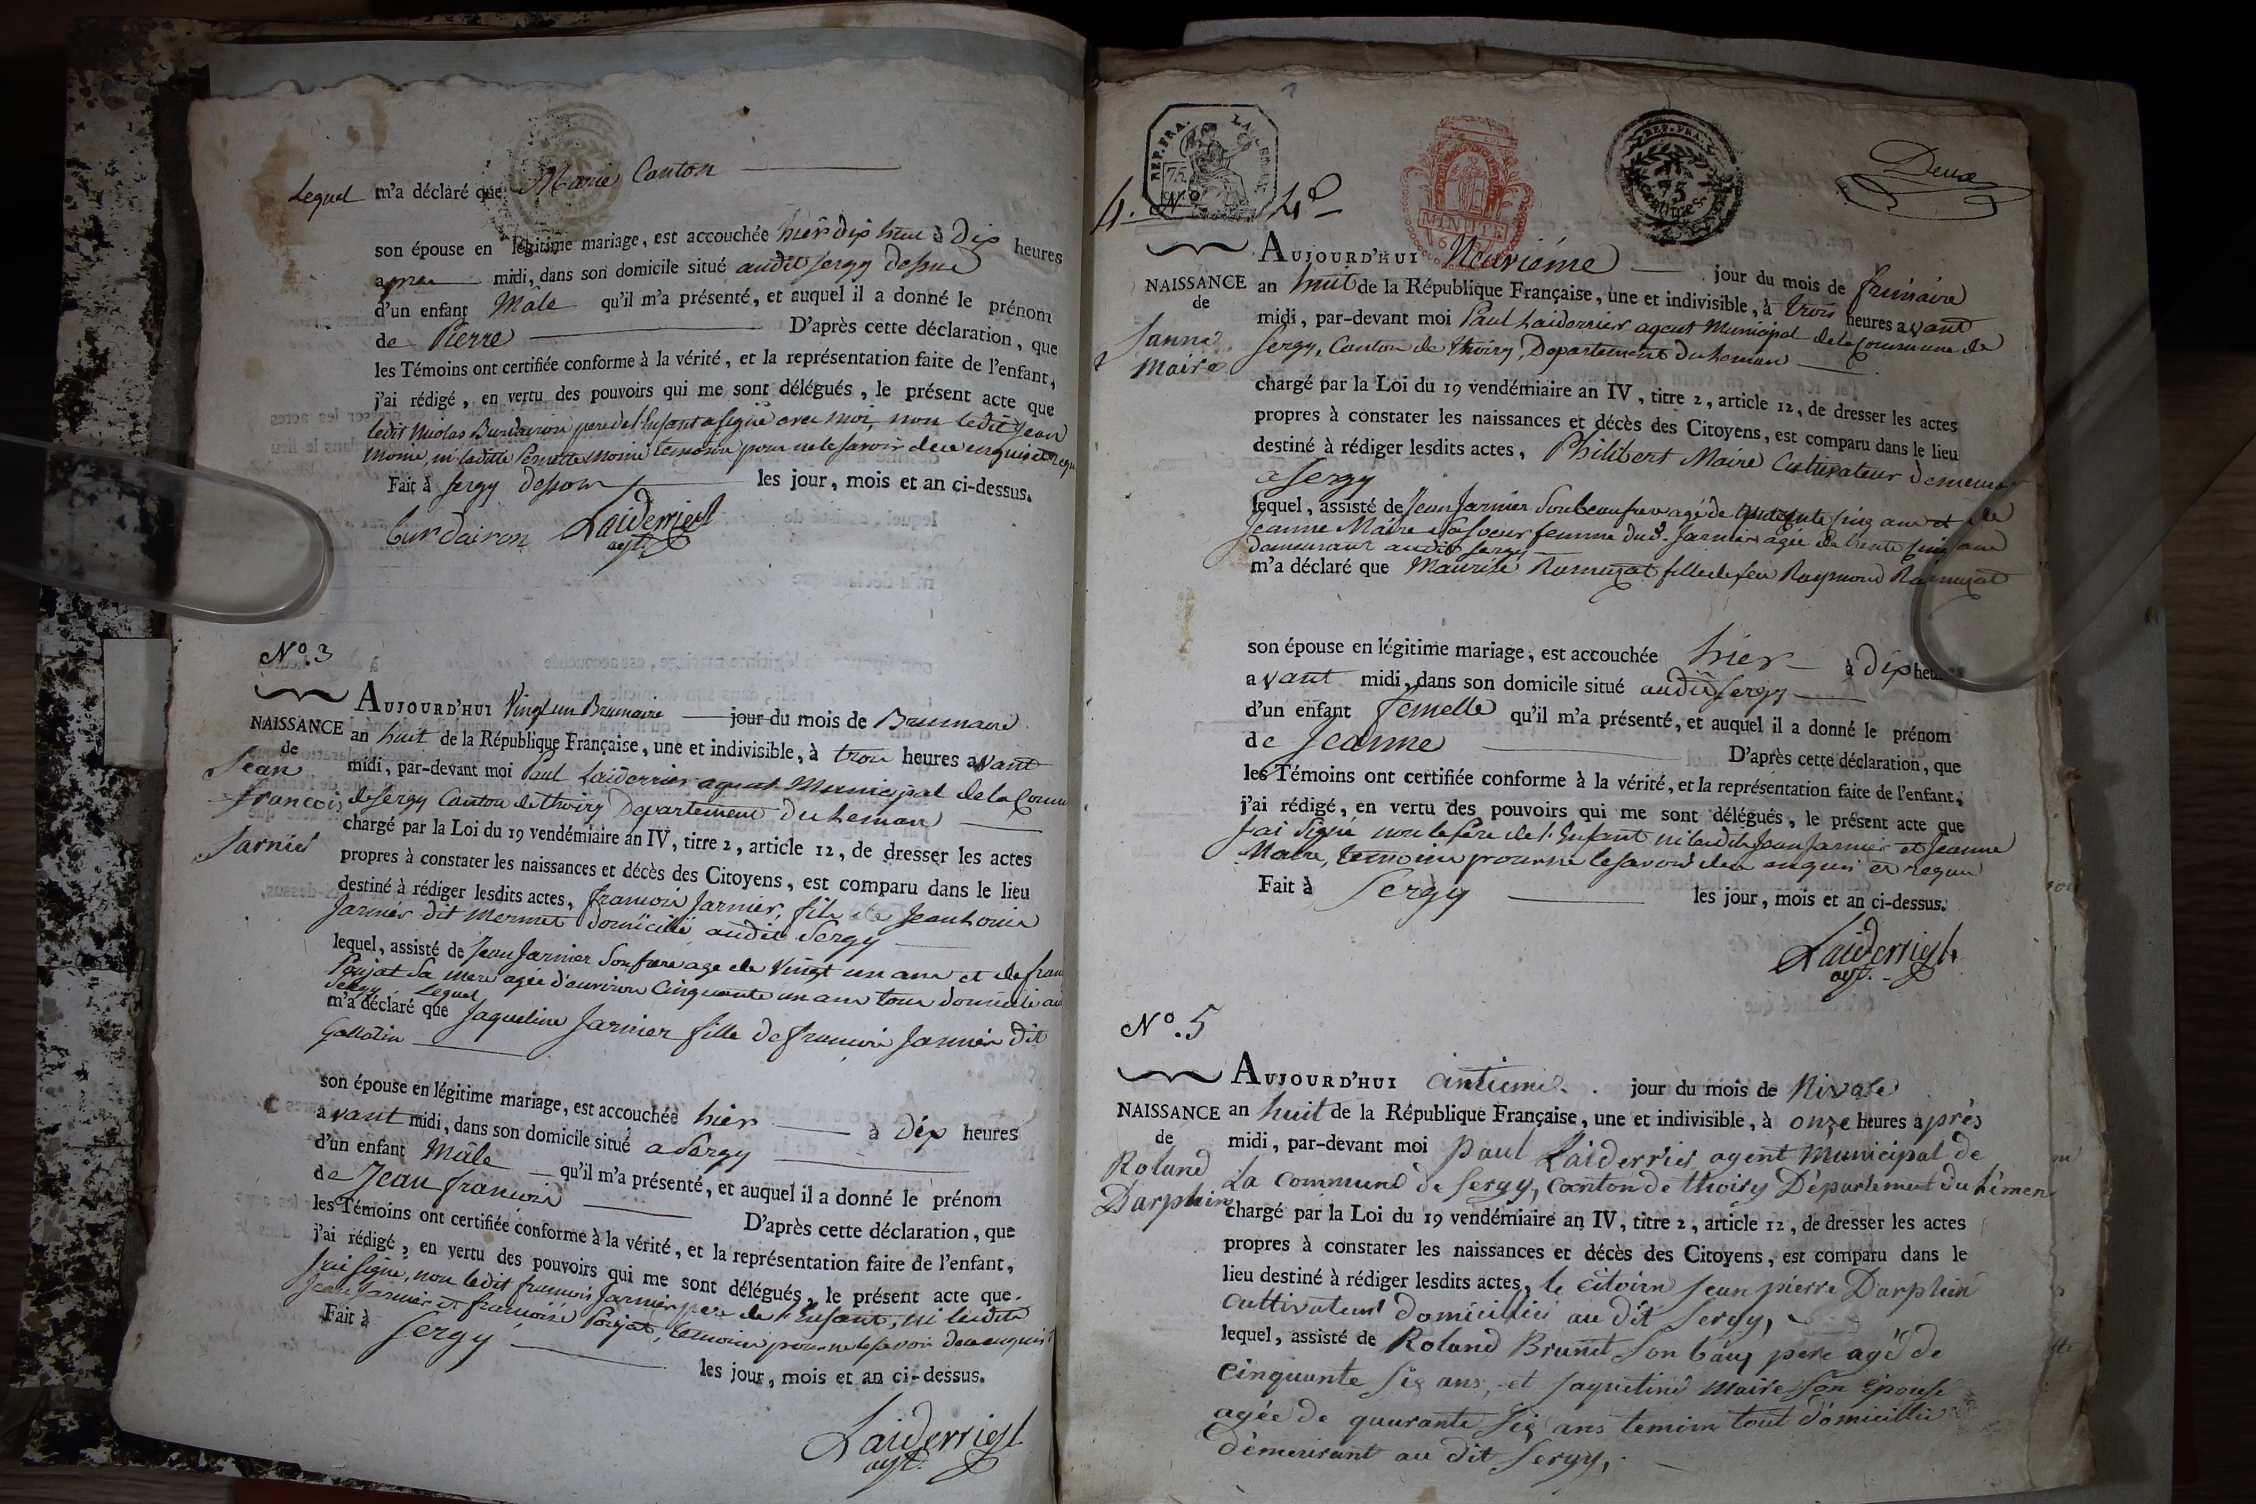 Lequel m'a déclaré que Marie Canton
son épouse en légitime mariage, est accouchée hier dix huit à Dix heures
apres midi, dans son domicile situé audit Sergy dessus
d'un enfant Mâle qu'il m'a présenté, et auquel il a donné le prénom
de Pierre D'après cette déclaration, que
les Témoins ont certifiée conforme à la vérité, et la représentation faite de l'enfant,
j'ai rédigé, en vertu des pouvoirs qui me sont délégués, le présent acte que
ledit Nicolas Burdairon pere de l'Enfant a signé avec moi, non ledit Jean
Moine, ni laditte Pernette Moine temoins pour ne le savoir de ce enquis et requis
Fait à Sergy dessous les jour, mois et an ci-dessus.
Burdairon Laiderrier
agt.
N°. 3
AUJOURD'HUI Vingt un Brumaire jour du mois de Brumaire
NAISSANCE an huit de la République Française, une et indivisible, à trois heures avant
de
Jean midi, par-devant moi Paul Laiderrier agent Municipal de la Comm
francois de Sergy Canton de thoiry Departement du Leman
chargé par la Loi du 19 vendémiaire an IV, titre 2, article 12, de dresser les actes
Jarnier propres à constater les naissances et décès des Citoyens, est comparu dans le lieu
destiné à rédiger lesdits actes, francois Jarnier, fils de Jean Louis
Jarnier dit Mermet domicilié audit Sergy
lequel, assisté de Jean Jarnier Son frere age de Vingt un ans et de fran
Poujat Sa mere agée d'environ Cinquante un ans tous domicilié au
Sergy Lequel
m'a déclaré que Jaqueline Jarnier fille de francois Jarnier dit
Gallatin
son épouse en légitime mariage, est accouchée hier à dix heures
avant midi, dans son domicile situé a Sergy
d'un enfant Mâle qu'il m'a présenté, et auquel il a donné le prénom
de Jean francois D'après cette déclaration, que
les Témoins ont certifiée conforme à la vérité, et la représentation faite de l'enfant,
j'ai rédigé, en vertu des pouvoirs qui me sont délégués, le présent acte que
J'ai signé, non ledit francois Jarnier pere de l'Enfant, ni lesdits
Jean Jarnier et francoise Poujat, temoins pour ne le savoir de ce enquis
Fait à Sergy les jour, mois et an ci-dessus.
Laiderrier
agt.
REP. FRA.
75
REP. FRA.
75
CENTIMES.
MINUTE
Deux
4. N° 4°
AUJOURD'HUI Neuviéme jour du mois de frimaire
NAISSANCE an huit de la République Française, une et indivisible, à trois heures avant
de
midi, par-devant moi Paul Laiderrier agent Municipal de la Commune de
Janne Sergy, Canton de thoiry, Departement du Leman
Maire
chargé par la Loi du 19 vendémiaire an IV, titre 2, article 12, de dresser les actes
propres à constater les naissances et décès des Citoyens, est comparu dans le lieu
destiné à rédiger lesdits actes, Philibert Maire Cultivateur demeurant
a Sergy
lequel, assisté de Jean Jarnier Son beau frere agé de cinq ans et de
Jeanne Maire Sa Soeur femme dud. Jarnier agée de trente cinq ans
demeurant audit Sergy
m'a déclaré que Maurise Ramuzat fille de feu Raymond Ramuzat
son épouse en légitime mariage, est accouchée hier à dix heures
avant midi, dans son domicile situé audit Sergy
d'un enfant femelle qu'il m'a présenté, et auquel il a donné le prénom
de Jeanne D'après cette déclaration, que
les Témoins ont certifiée conforme à la vérité, et la représentation faite de l'enfant,
j'ai rédigé, en vertu des pouvoirs qui me sont délégués, le présent acte que
J'ai Signé non le Pere de l'Enfant ni lesdits Jean Jarnier et Jeanne
Maire, temoins pour ne le savoir de ce enquis et requis
Fait à Sergy les jour, mois et an ci-dessus.
Laiderrier
agt.
N°. 5
AUJOURD'HUI cintieme jour du mois de Nivose
NAISSANCE an huit de la République Française, une et indivisible, à onze heures après
de
midi, par-devant moi Paul Laiderrier agent Municipal de
Roland La Commune de Sergy, Canton de thoiry Département du Léman
Darphin chargé par la Loi du 19 vendémiaire an IV, titre 2, article 12, de dresser les actes
propres à constater les naissances et décès des Citoyens, est comparu dans le
lieu destiné à rédiger lesdits actes, le citoien Jean pierre Darphin
cultivateur domicillié au dit Sergy,
lequel, assisté de Roland Brunet Son bau pere agé de
cinquante Six ans, et Jaqueline Maire Son Epouse
agée de quarante Six ans temoins tout domicillié
demeurant au dit Sergy,